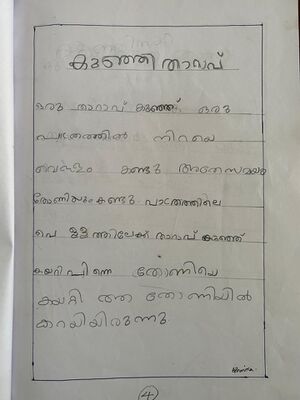 കുഞ്ഞി താറാവ്
ഒരു താറാവ് കുഞ്ഞ് ഒരു
പാത്രത്തിൽ നിറയെ
വെള്ളം കണ്ടു അതേസമയം
തോണിയും കണ്ടു പാത്രത്തിലെ
വെ ള്ളത്തിലേക്ക് താറാവ് കുഞ്ഞ്
കയറി പിന്നെ തോണിയെ
കയറ്റി ആ തോണിയിൽ
കയറിയിരുന്നു
4